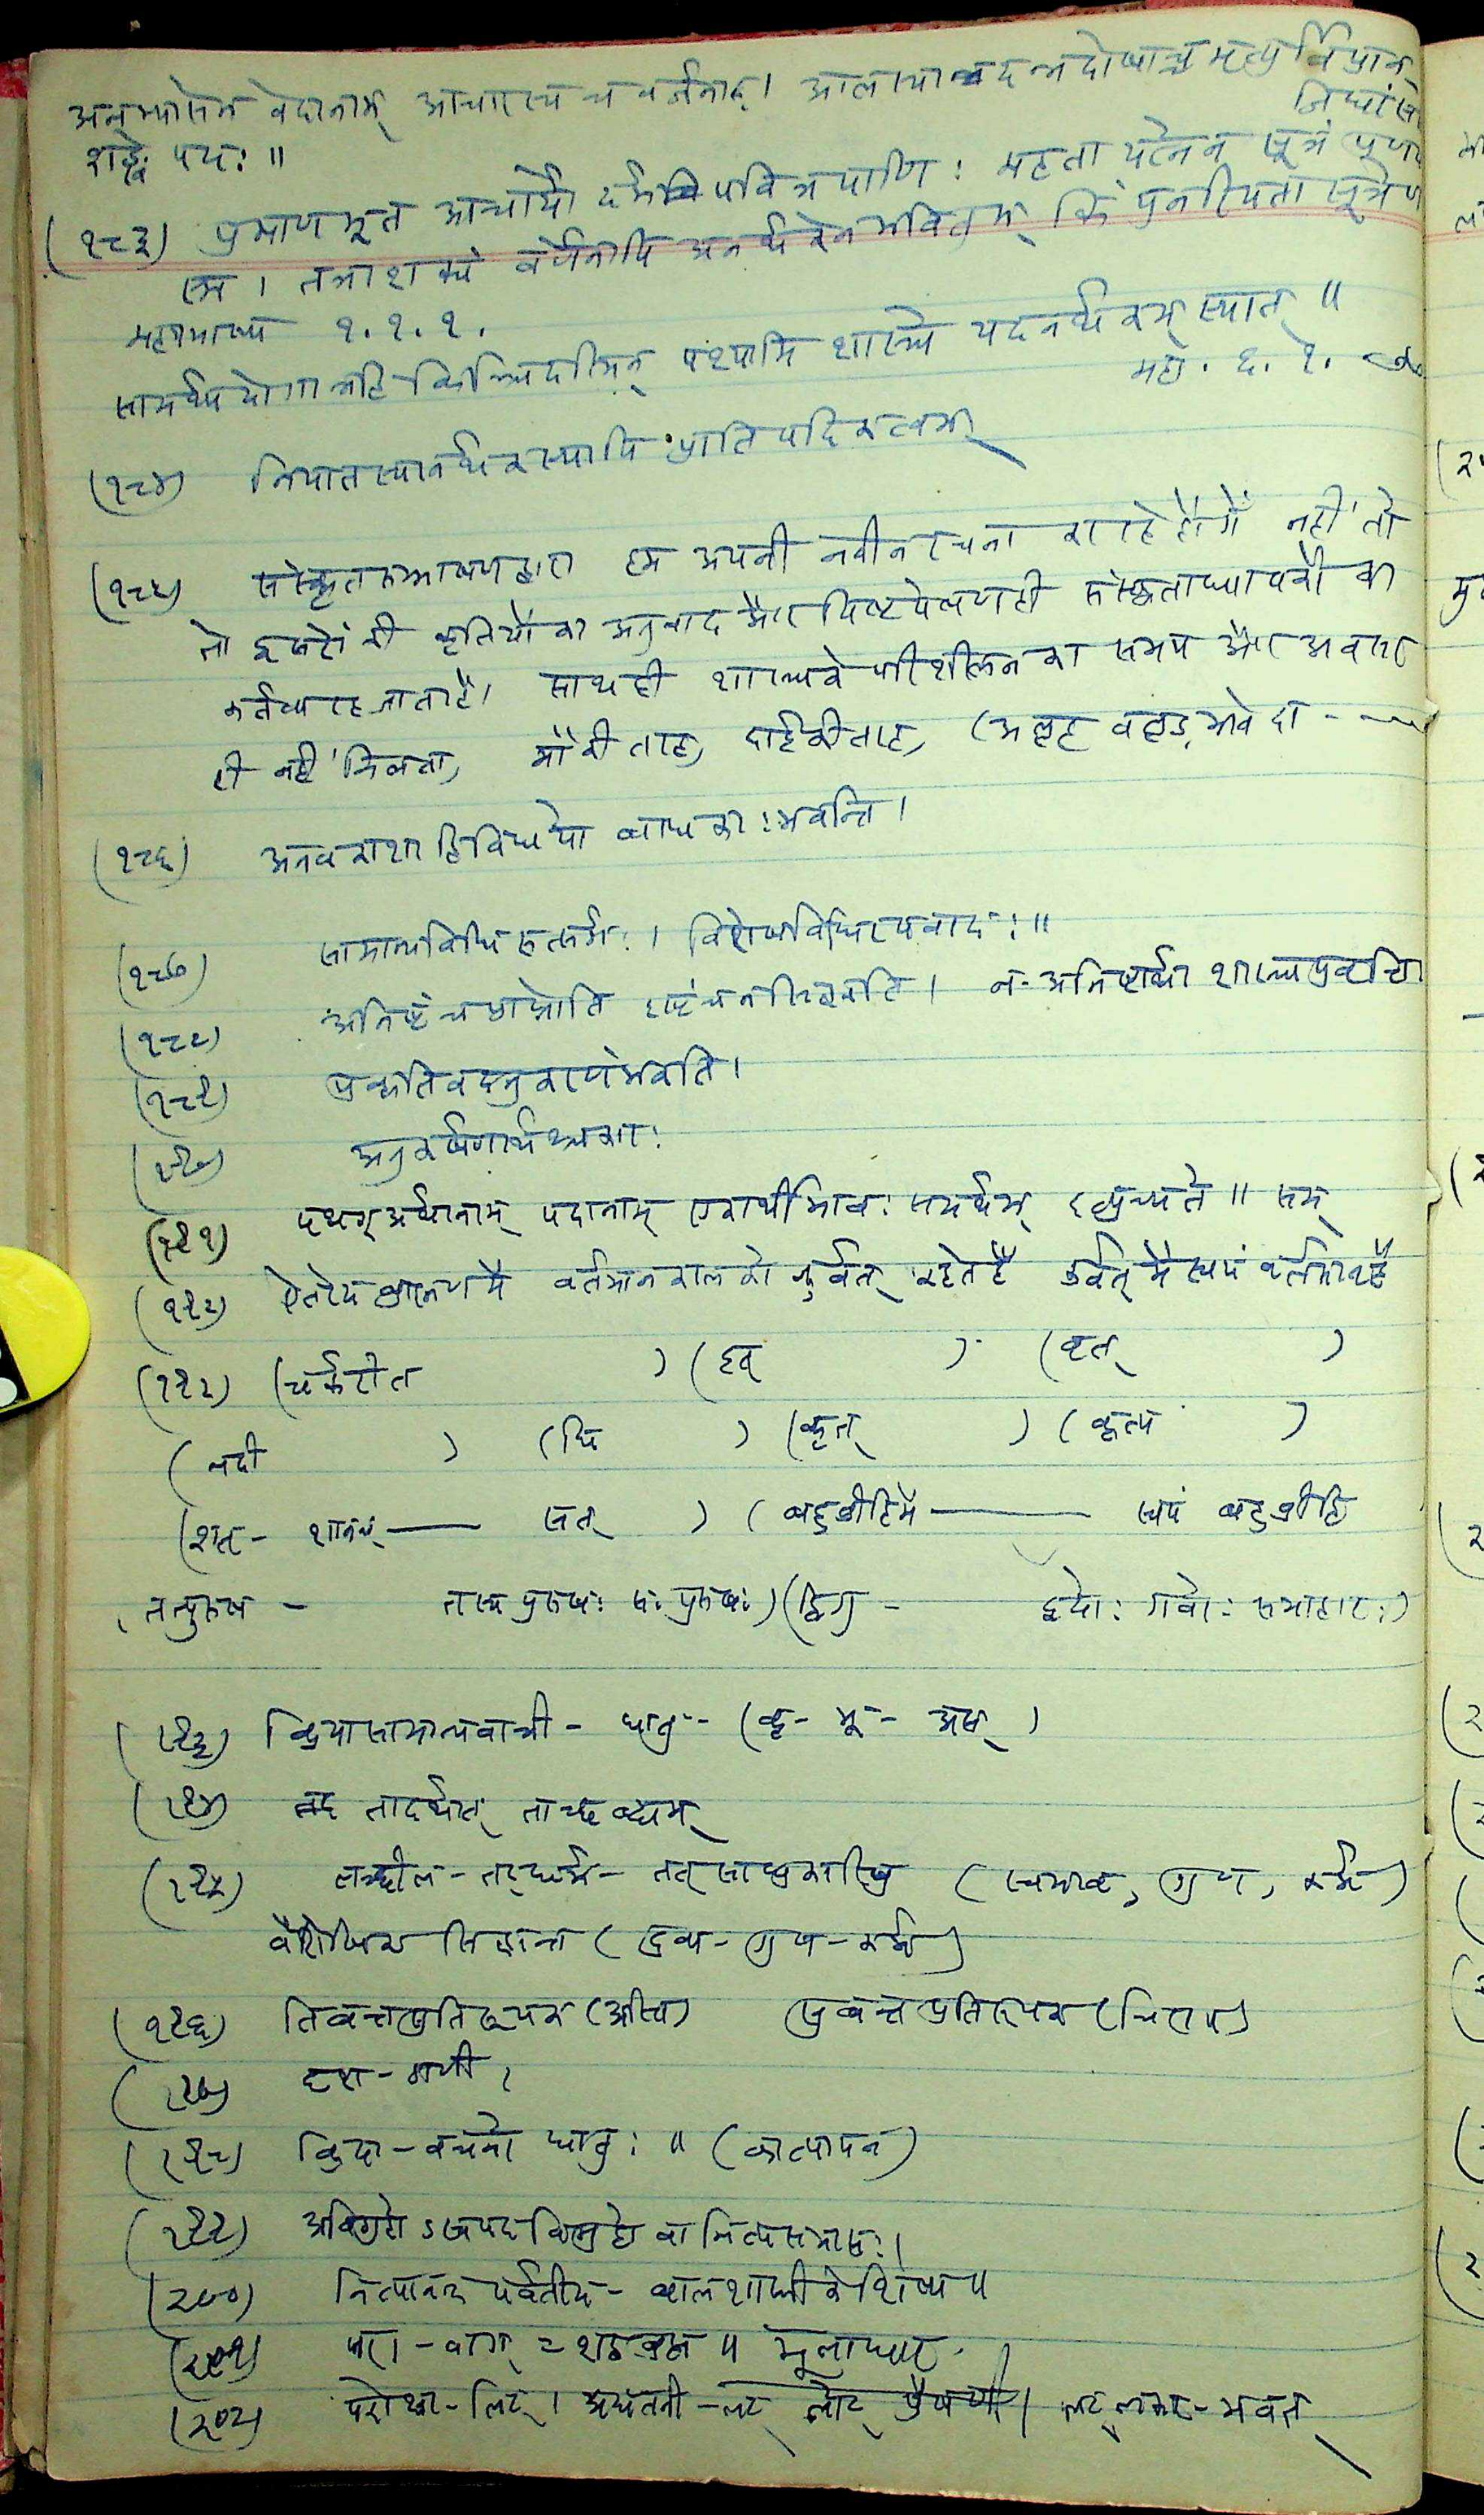 अनभ्यासेन वेदानाम् आचारस्य च वर्जनात्। आलस्यान्नदन्नदोषाच्च मृत्युर्विप्रान्
जिघांस
शाङ्के पयः॥
(१८३) प्रमाणभूत आचार्यो दर्भपवित्रपाणिः महता यत्नेन सूत्रं प्रणय
स्म। तत्राशक्यं वर्णेनापि अनर्थकेन भवितुम् किं पुनरियता सूत्रेण
महाभाष्य १.१.१.
सामर्थ्ययोगान्नहि किञ्चिदस्मिन् पश्यामि शास्त्रे यदनर्थकम् स्यात्॥
महा. ६.१.
(१८४) निपातस्यानर्थकस्यापि प्रातिपदिकत्वम्
(१८५) संस्कृतसम्भाषणद्वारा हम अपनी नवीन रचना कर रहे होंगें नहीं तो
तो दूसरों की कृतियों का अनुवाद और पिष्टपेषण ही संस्कृताध्यापकों का
कर्तव्य रह जाता है। साथ ही शास्त्र के परिशीलन का समय और अवसर
ही नहीं मिलता,
(१८६) अनवकाशा हि विधयो बाधकाः भवन्ति।
(१८७) सामान्यविधि रुत्सर्गः। विशेषविधिरपवादः॥
(१८८) अनिष्टं च प्राप्नोति इष्टं च न सिद्ध्यति। न अनिष्टार्था शास्त्र प्रवृत्ति
(१८९) प्रकृतिवदनुकरणं भवति।
(१९०) अनुकर्षणार्थश्चकारः
(१९१) पृथग् अर्थानाम् पदानाम् एकार्थीभावः समर्थम् इत्युच्यते॥ सम्
(१९२) ऐतरेय ब्राह्मण में वर्तमान काल को कुर्वत् कहते हैं कुर्वत् में स्वयं वर्तमान है
(१९२) (चर्करीत ) (इव् ) (वृत् )
(नदी ) (घि ) (कृत् ) (कृत्य )
(शतृ - शानच् — सत् ) (बहुव्रीहि में — स्वयं बहुव्रीहि
तत्पुरुष - तस्य पुरुषः सः पुरुषः) (द्विगु - द्वयोः गवोः समाहारः)
(१९३) क्रियासामान्यवाची - धातु - (कृ - भू - अस्)
(१९४) तादर्थ्यात् ताच्छब्द्यम्
(१९५) तच्छील - तद्धर्म - तत्साधुकारिषु (स्वभाव, गुण, कर्म)
वैशेषिक सिद्धान्त (द्रव्य - गुण - कर्म)
(१९६) तिङन्तप्रतिरूपक (अस्ति) सुबन्तप्रतिरूपक (चिराय)
(१९७)
(१९८) क्रिया - वचनो धातुः॥ (कात्यायन)
(१९९) अविग्रहो ऽस्वपद विग्रहो वा नित्यसमासः।
(२००) नित्यानन्द पर्वतीय - बालशास्त्री के शिष्य॥
(२०१) परा - वाग् = शब्दब्रह्म॥ मूलाधार.
(२०२) परोक्षा - लिट्। अद्यतनी - लट् लोट् प्रैषणी। लट् लकार - भवत्